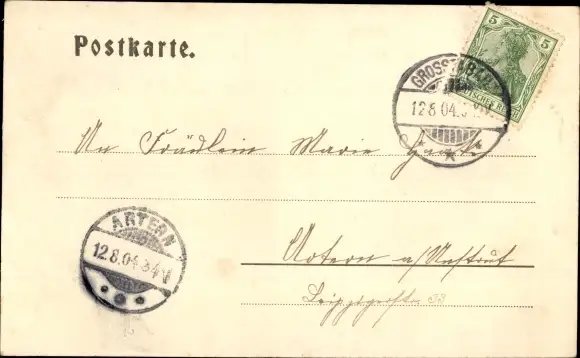 Postkarte.
5 5
DEUTSCHES REICH
12.8.04.
An Fräulein Marie
ARTERN
12.8.04 3-4V
Artern a/Unstrut
Leipzigerstr. 38